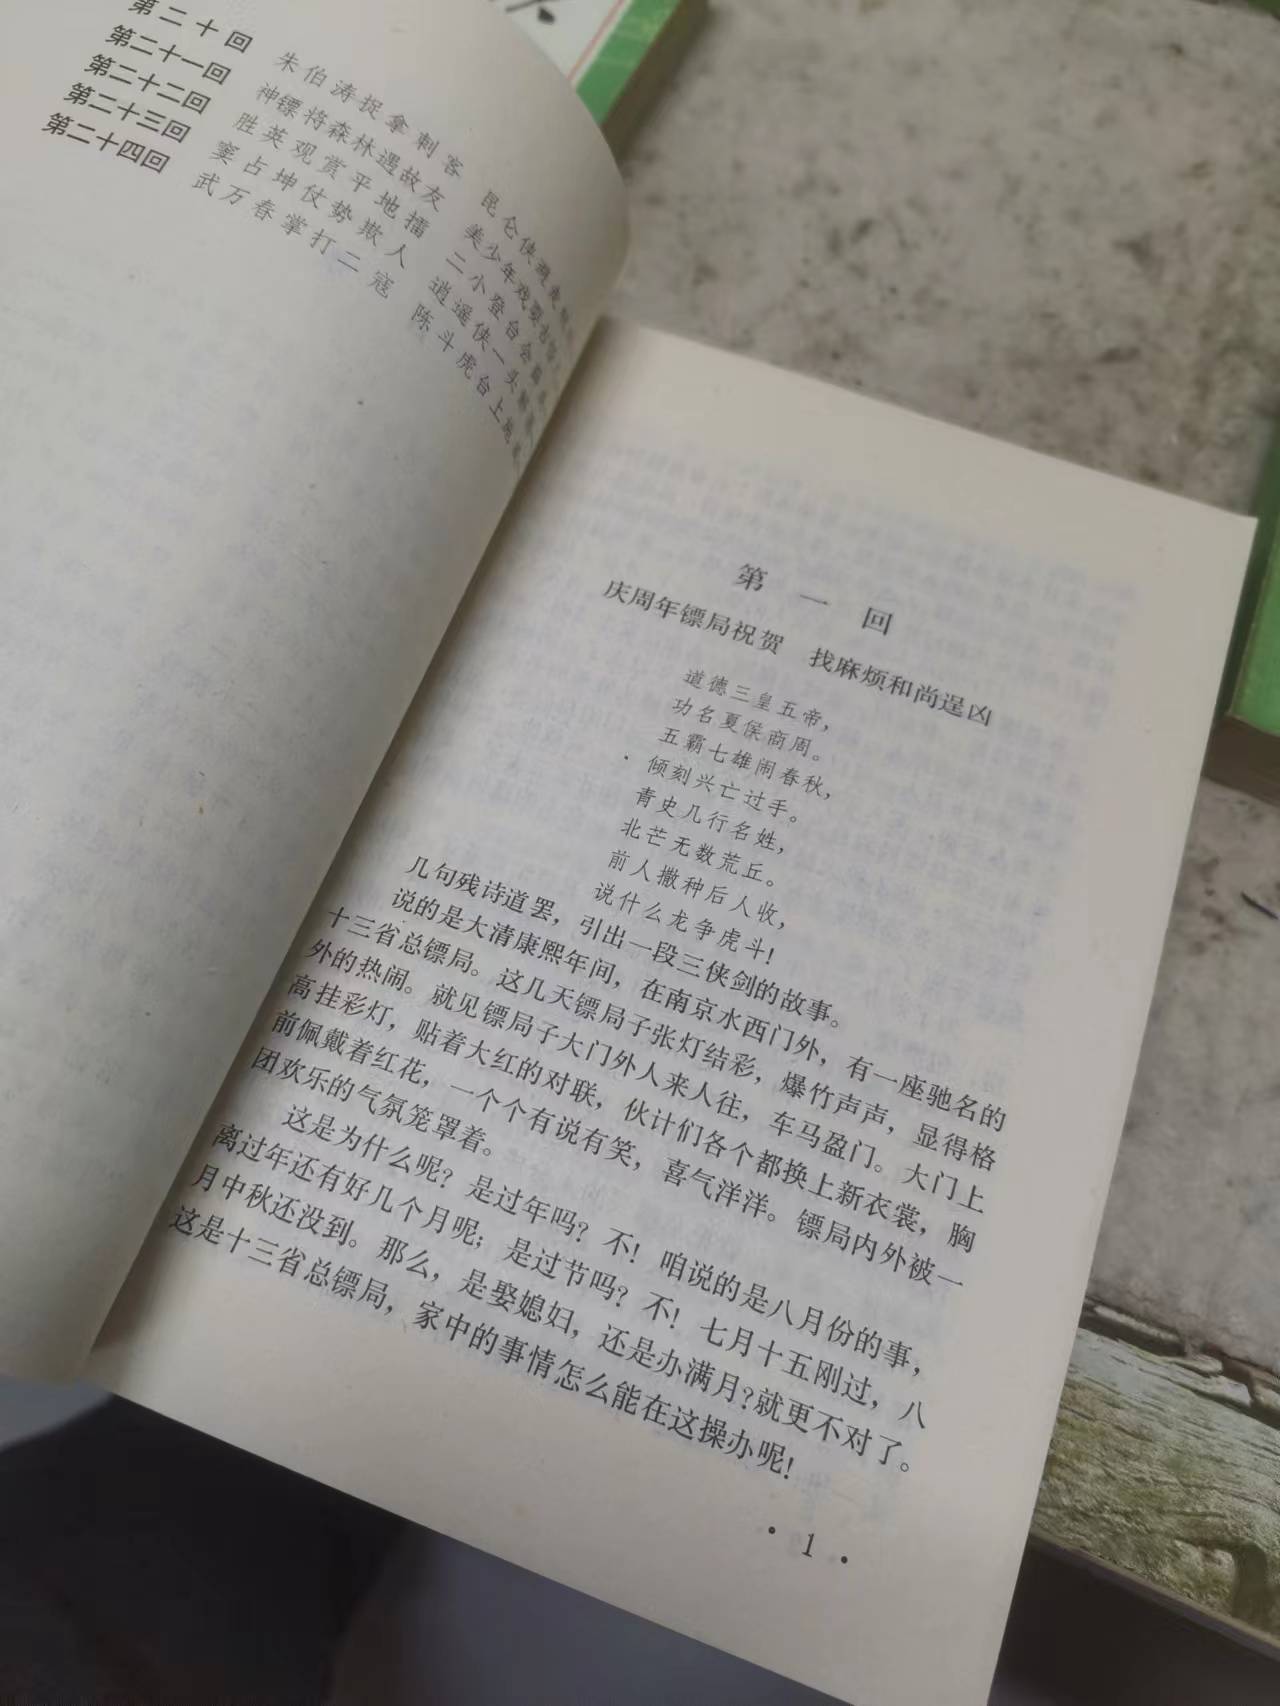 第二十回 朱伯涛捉拿刺客 昆仑侠
第二十一回 神镖将森林遇故友 美少年戏耍
第二十二回 胜英观赏平地擂 二小登台会
第二十三回 窦占坤仗势欺人 逍遥侠一头
第二十四回 武万春掌打二寇 陈斗虎台上
第一回
庆周年镖局祝贺 找麻烦和尚逞凶
道德三皇五帝，
功名夏侯商周。
五霸七雄闹春秋，
倾刻兴亡过手。
青史几行名姓，
北芒无数荒丘。
前人撒种后人收，
说什么龙争虎斗！
几句残诗道罢，引出一段三侠剑的故事。
说的是大清康熙年间，在南京水西门外，有一座驰名的
十三省总镖局。这几天镖局子张灯结彩，爆竹声声，显得格
外的热闹。就见镖局子大门外人来人往，车马盈门。大门上
高挂彩灯，贴着大红的对联，伙计们各个都换上新衣裳，胸
前佩戴着红花，一个个有说有笑，喜气洋洋。镖局内外被一
团欢乐的气氛笼罩着。
这是为什么呢？是过年吗？不！咱说的是八月份的事，
离过年还有好几个月呢；是过节吗？不！七月十五刚过，八
月中秋还没到。那么，是娶媳妇，还是办满月？就更不对了。
这是十三省总镖局，家中的事情怎么能在这操办呢！
· 1 ·